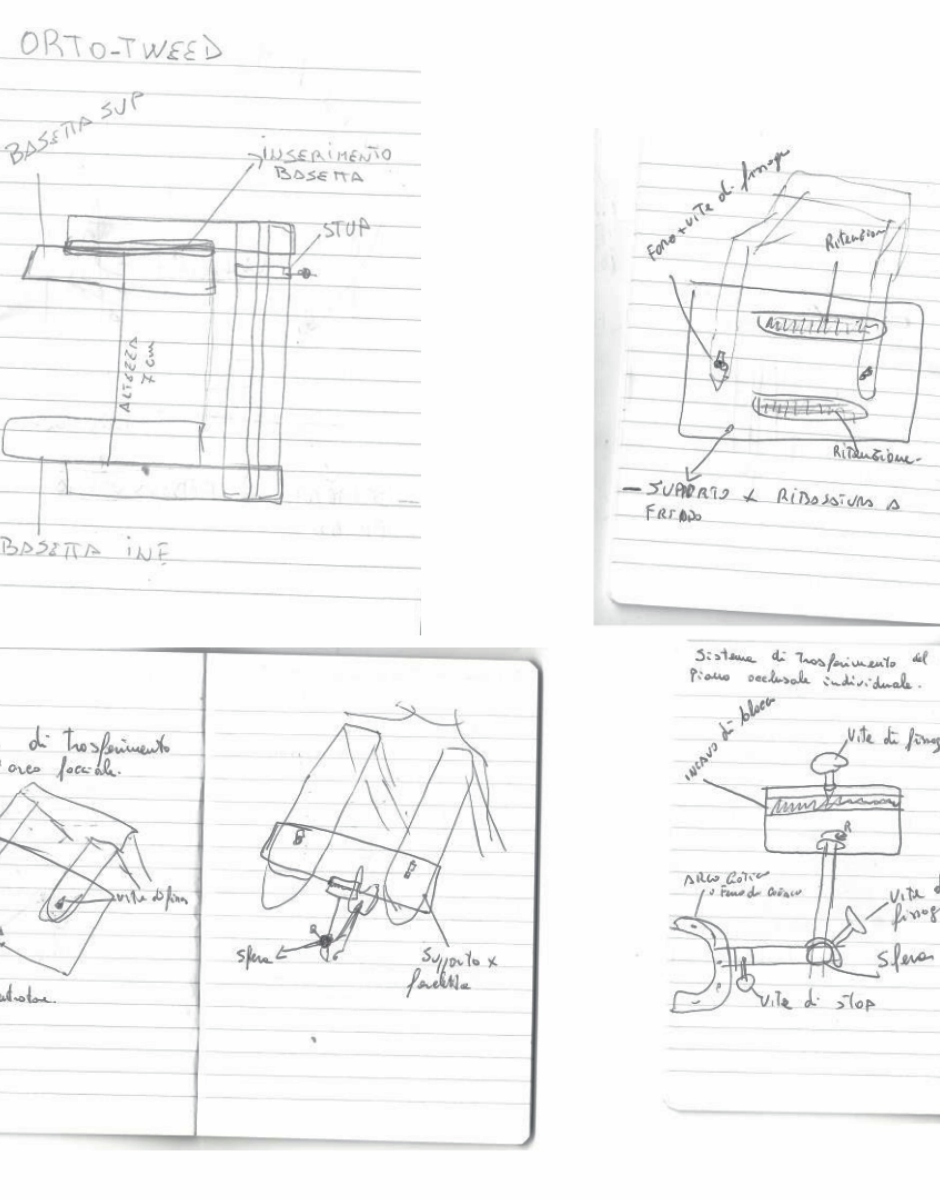 ORTO-TWEED
BASETTA SUP
INSERIMENTO
BASETTA
STUP
ALTEZZA
7 cm
BASETTA INF
Foro + vite di
Ritenzion
Ritenzione.
- SUPPORTO X RIBASATURA A
FREDDO
di trasferimento
arco facciale.
vite di
Sfera
Supporto x
forchetta
Sistema di Trasferimento del
Piano occlusale individuale.
INCAVO di blocco
Vite di
R
ARCO GOTICO
Vite
Sfera
Vite di STOP